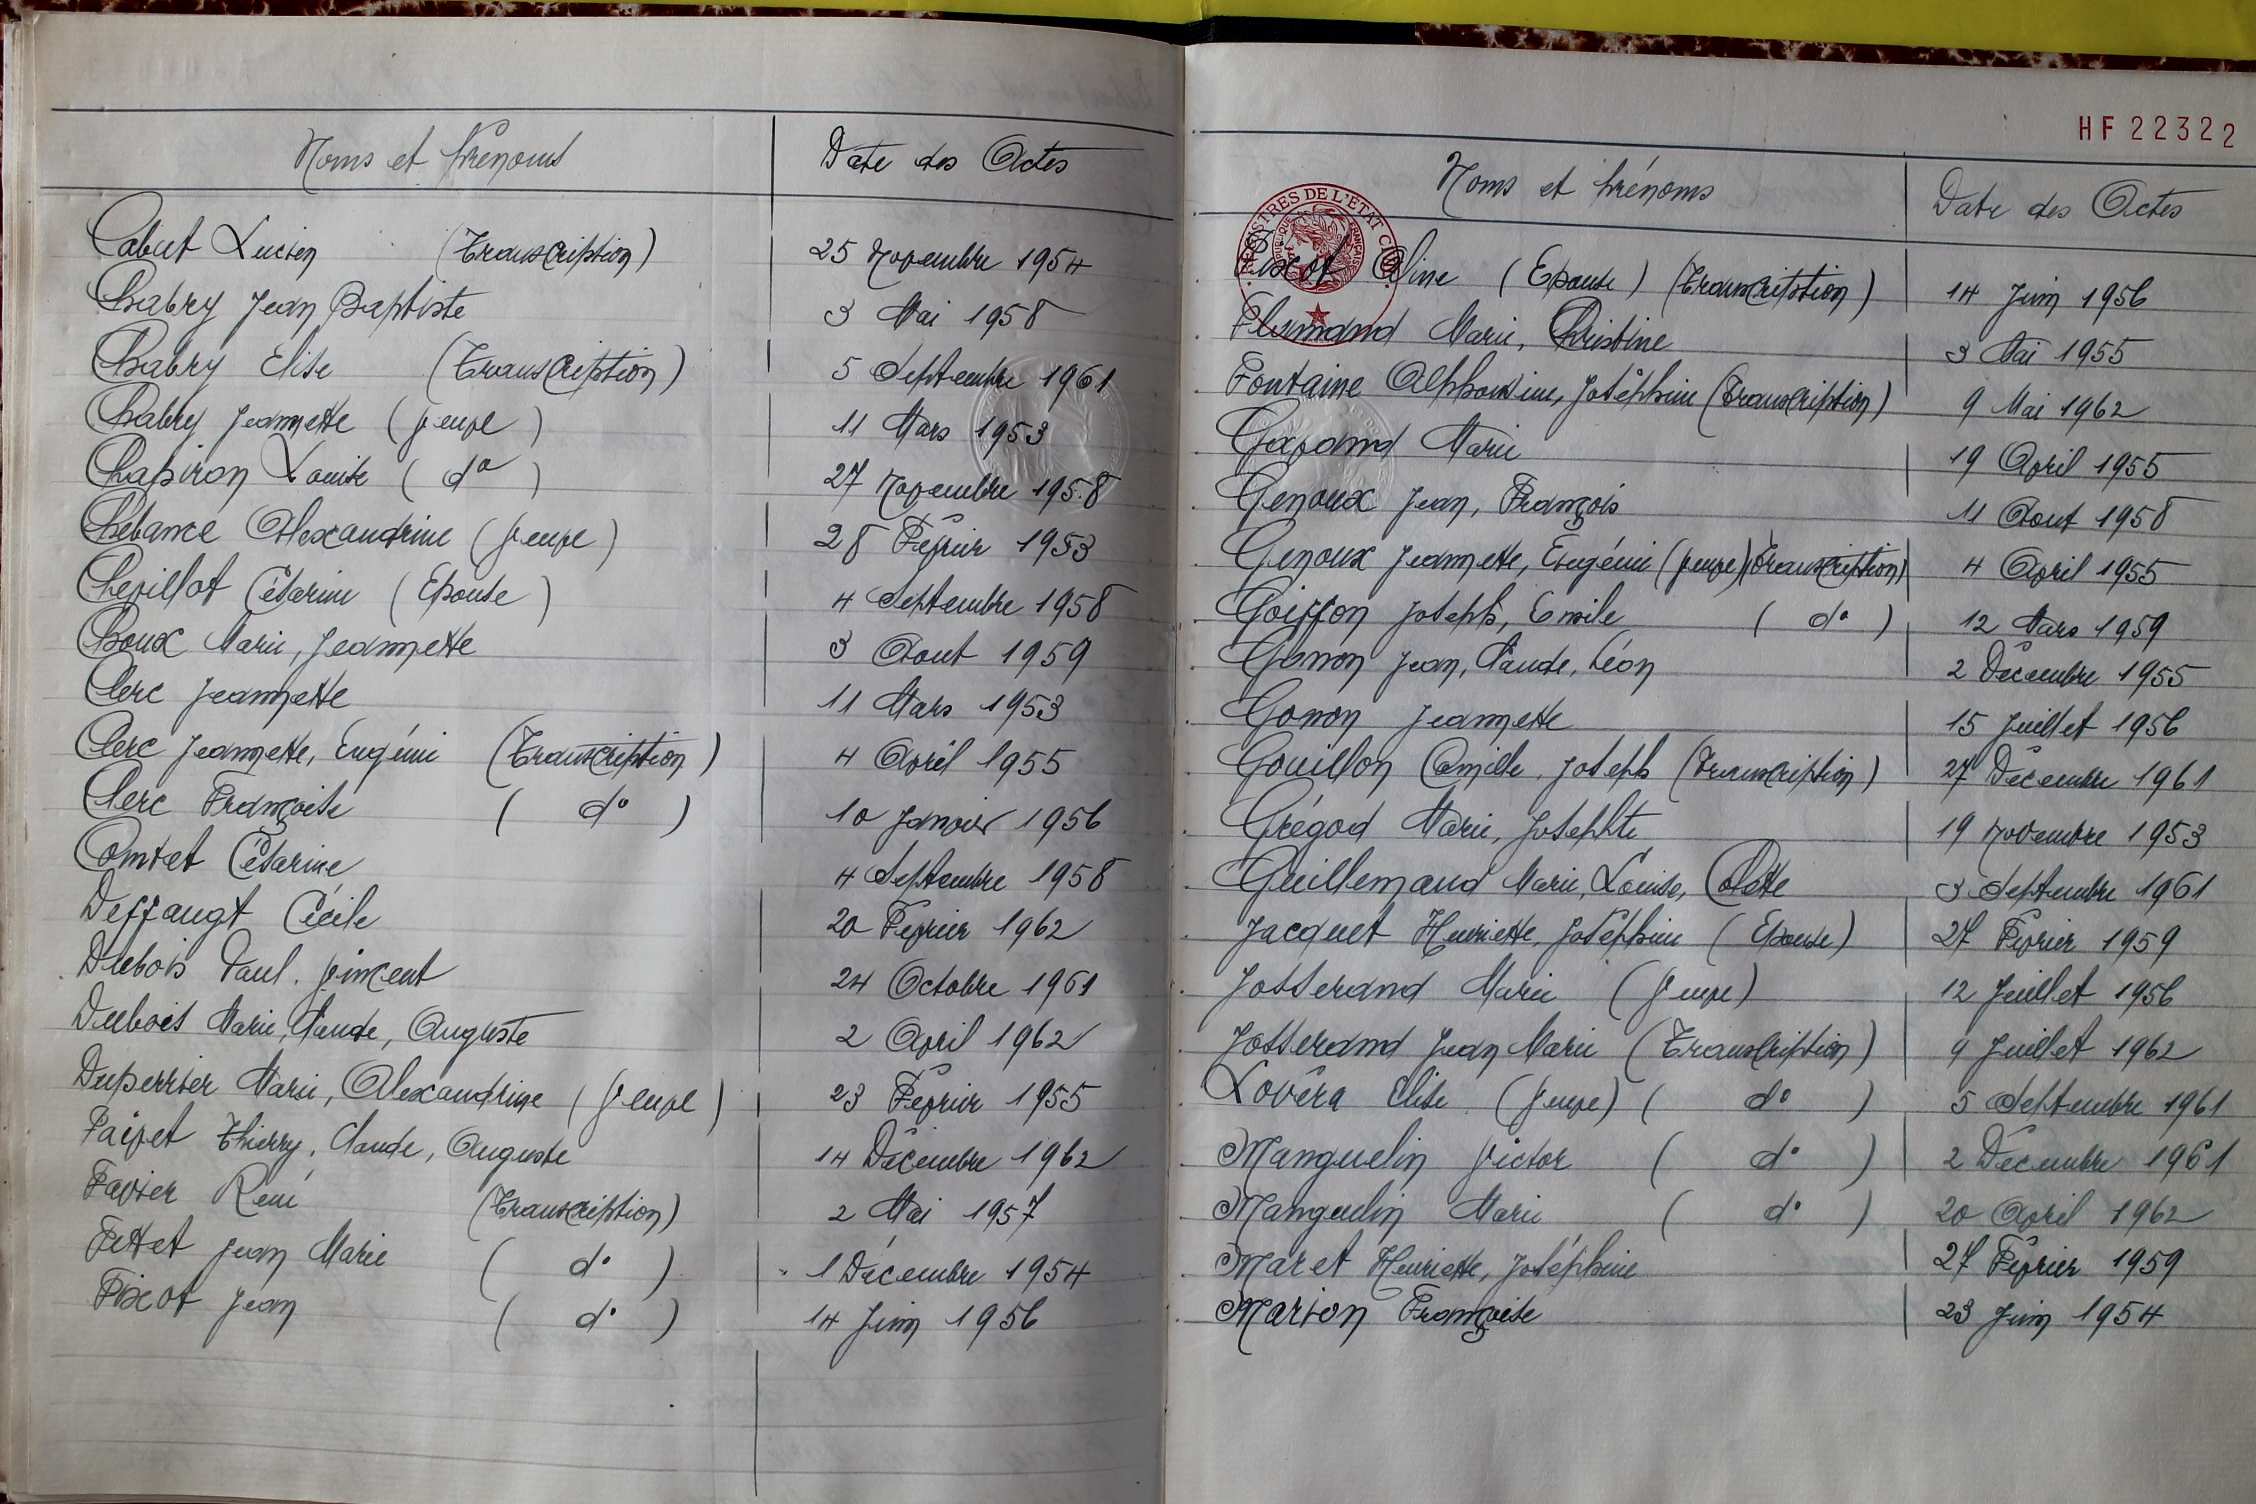 Noms et Prénoms Date des Actes
Cabut Lucien (Transcription) 25 Novembre 1954
Chabry Jean Baptiste 3 Mai 1958
Chabry Elise (Transcription) 5 Septembre 1961
Chabry Jeannette (veuve) 11 Mars 1953
Chapiron Louise (do) 27 Novembre 1958
Chébance Alexandrine (veuve) 28 Février 1953
Chevillot Césarine (Epouse) 4 Septembre 1958
Choux Marie, Jeannette 3 Aout 1959
Clerc Jeannette 11 Mars 1953
Clerc Jeannette, Eugénie (Transcription) 4 Avril 1955
Clerc Françoise (do) 10 Janvier 1956
Comtet Césarine 4 Septembre 1958
Deffaugt Cécile 20 Février 1962
Dubois Paul. Vincent 24 Octobre 1961
Dubois Marie, Claude, Auguste 2 Avril 1962
Duperrier Marie, Alexandrine (veuve) 23 Février 1955
Faivet Thierry, Claude, Auguste 14 Décembre 1962
Favier René (Transcription) 2 Mai 1957
Fettet Jean Marie (do) 1 Décembre 1954
Fixot Jean (do) 14 Juin 1956
HF 22322
Noms et Prénoms Date des Actes
REGISTRES DE L'ETAT CIVIL
Fixot Aline (Epouse) (Transcription) 14 Juin 1956
Flamand Marie, Christine 3 Mai 1955
Fontaine Alphonsine, Joséphine (Transcription) 9 Mai 1962
Gavand Marie 19 Avril 1955
Genoux Jean, François 11 Aout 1958
Genoux Jeannette, Eugénie (veuve) (Transcription) 4 Avril 1955
Goiffon Joseph, Emile (do) 12 Mars 1959
Gonon Jean, Claude, Léon 2 Décembre 1955
Gonon Jeannette 15 Juillet 1956
Gouillon Camille, Joseph (Transcription) 27 Décembre 1961
Grégod Marie, Josephte 19 Novembre 1953
Guillemaud Marie, Louise, Colette 3 Septembre 1961
Jacquet Henriette, Joséphine (Epouse) 27 Février 1959
Josserand Marie (veuve) 12 Juillet 1956
Josserand Jean Marie (Transcription) 9 Juillet 1962
Lovéra Elise (veuve) (do) 5 Septembre 1961
Manguelin Victor (do) 2 Décembre 1961
Manguelin Marie (do) 20 Avril 1962
Maret Henriette, Joséphine 27 Février 1959
Marion Françoise 23 Juin 1954